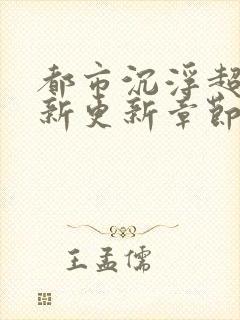 都市沉浮超
新更新章節
王孟儒